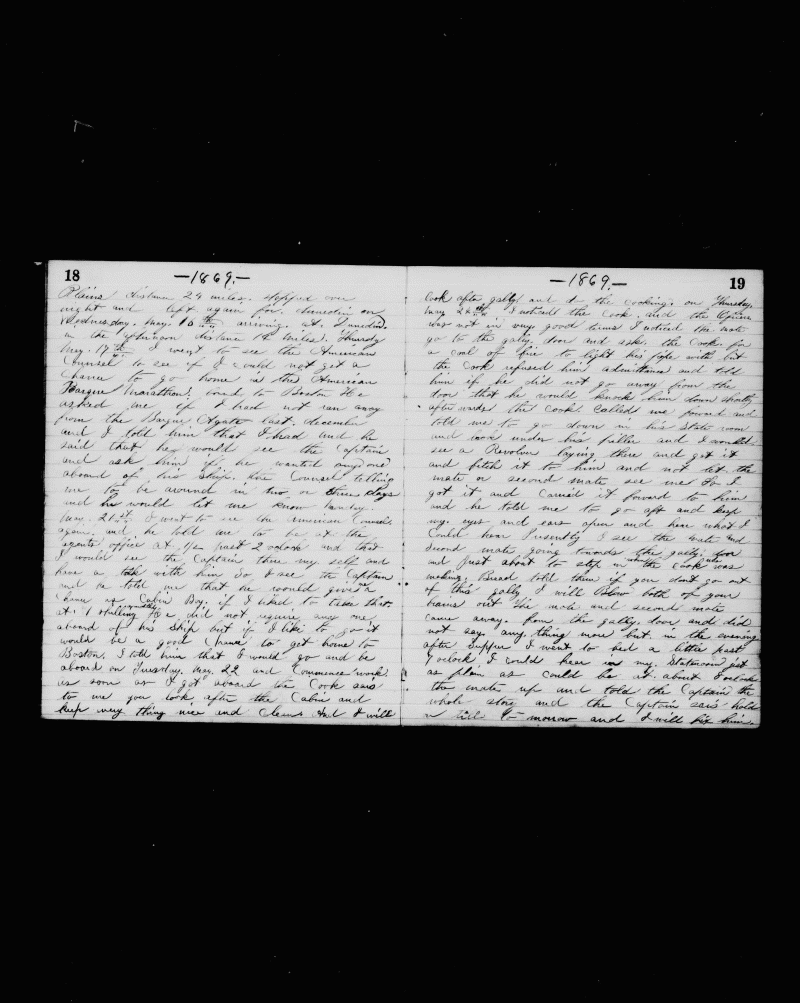 18
—1869.—
Plains distance 24 miles. stopped over
night and left again for Dunedin on
Wednesday. May. 16th arriving at Dunedin
in the afternoon distance 14 miles. Thursdy
May. 17th I went to see the American
Counsel to see if I could not get a
Chance to go home in the American
Barque Marathon. bound to Boston He
asked me if I had not ran away
from the Barque Agate last. december
and I told him that I had and he
said that he would see the Captain
and ask him if he wanted any one
aboard of his Ship. the Counsel telling
me to be around in two or three days
and he would let me know
May. 21st I went to see the American Counsel
again. and he told me to be at the
agents office at 1/2 past 2 oclock and that
I would see the Captain there my self and
have a talk with him So I see the Captain
and he told me that he would give me a
Chance as Cabin Boy. if I liked to take that.
at 1 Shilling He did not require any one
aboard of his ship but if I like to go it
would be a good Chance to get home to
Boston. I told him that I would go and be
aboard on Tuesday. May 22 and Commence work.
as soon as I got aboard the Cook said
to me you look after the Cabin and
keep every thing nice and clean And I will
—1869.—
19
look after gally and do the Cooking. on Thursday.
May 24th I noticed the Cook. and the
was not in very good terms I noticed the mate
go to the gally. door and ask. the Cook. for
a coal of fire to light his pipe with but
the Cook refused him admittance and told
him if he did not go away from the
door that he would knock him down shortly
afterwards the Cook Called me foward and
told me to go down in his State room
and look under his pillow and I would
see a Revolver laying there and get it
and fetch it to him and not let the
mate or second mate see me So I
got it and Carried it foward to him
and he told me to go aft and keep
my. eyes and ears open and hear what I
Could hear Presently I see the mate and
Second mate going towards the gally. door
and just about to step in when the Cook who was
making. Bread told them if you don't go out
of this gally I will Blow both of your
brains out the mate and second mate
came away. from the gally. door and did
not say. any. thing more but in the evening
after Supper I went to bed a little past
7 oclock I could hear in my. Stateroom just
as plain as could be at about 8 oclock
the mate up and told the Captain the
whole story and the Captain said hold
on till to morrow and I will fix him.